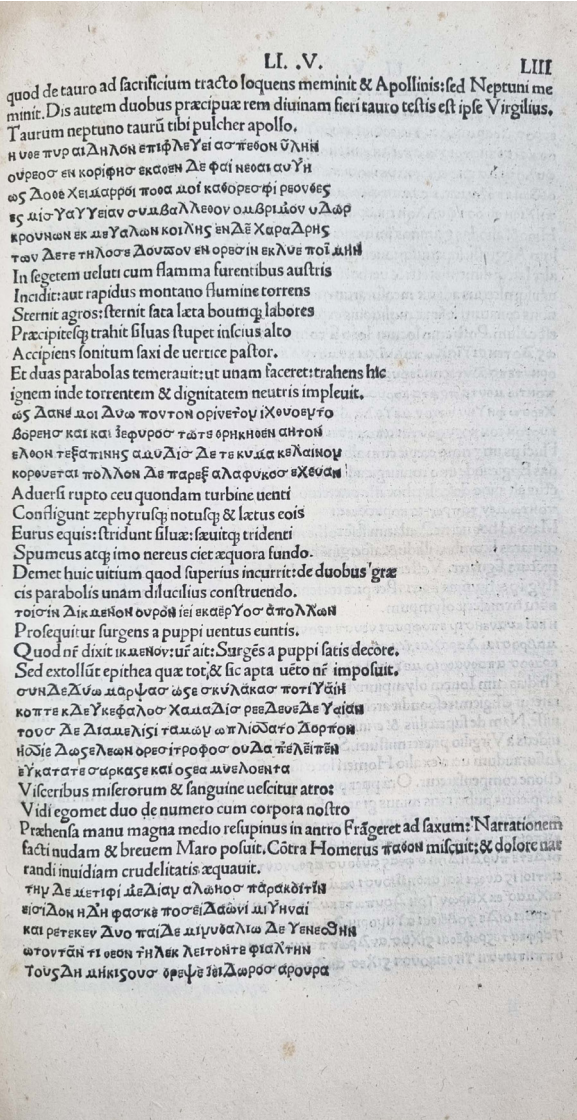 LI. .V. LIII
quod de tauro ad sacrificium tracto loquens meminit & Apollinis: sed Neptuni me
minit. Dis autem duobus præcipuæ rem diuinam fieri tauro testis est ipse Virgilius.
Taurum neptuno taurū tibi pulcher apollo.
Η υθε πυρ αιΔΗλοΝ επιφλεΥει ασπεδον ὕλΗΝ
ουρεοσ εν κορΙφΗσ εκαθεΝ Δε φαἱ νεθαι αυΥΗ
ως Δοθε Χειμαρροι ποθα μοἱ καθορεσφι ρεονθες
ες μισΥαΥΥειαν συμβαλλεθον ομβριμον υΔωρ
κρουΝωΝ εκ μεΥαλωΝ κοιλΗς εΝΔε ΧαραΔρΗς
των Δετε τΗλοσε Δουπον εΝ ορεσιν εκλυε ποἱμΗΝ
In segetem ueluti cum flamma furentibus austris
Incidit: aut rapidus montano flumine torrens
Sternit agros: sternit sata læta boumq; labores
Præcipitesq; trahit siluas stupet inscius alto
Accipiens sonitum saxi de uertice pastor.
Et duas parabolas temerauit: ut unam faceret: trahens hic
ignem inde torrentem & dignitatem neutris impleuit.
ως ΔαΝε μοι Δυω ποΝτοΝ οριΝετοΝ ιΧθυοεΝτο
βορεΗσ και και Ιεφυροσ τωτε θρΗκΗθεΝ αΗτοΝ
ελθοΝ τεξαπιΝΗς αμυΔισ Δε τε κυμα κελαιΝοΝ
κορθυεται πολλοΝ Δε παρεξ αλαφυκοσ εΧευαΝ
Aduersi rupto ceu quondam turbine uenti
Confligunt zephyrusq; notusq; & lætus eois
Eurus equis: stridunt siluæ: sæuitq; tridenti
Spumeus atq; imo nereus ciet æquora fundo.
Demet huic uitium quod superius incurrit: de duobus græ
cis parabolis unam dilucilius construendo.
τοισιΝ ΔικμεΝοΝ ουροΝ ιει εκαεῤΥοσ ἀπολλωΝ
Prosequitur surgens a puppi uentus euntis.
Quod nr̄ dixit ικμεΝοΝ: ur̄ ait: Surgēs a puppi satis decore.
Sed extollūt epithea quæ tot; & sic apta uēto nr̄ imposuit.
συΝΔεΔυω μαρψασ ωςε σκυλακασ ποτιΥαιΗ
κοπτε κΔεΥκεφαλοσ ΧαμαΔισ ρεεΔευεΔε ΥαιαΝ
τουσ Δε Διαμελιςι ταμωΝ ωπλιςςατο ΔορποΝ
ΗςςἱεΔωςελεωΝ ορεσιτροφοσ ουΔα πελειπεΝ
εΥκατατε σαρκαςε και οςεα μυελοεΝτα
Visceribus miserorum & sanguine uescitur atro:
Vidi egomet duo de numero cum corpora nostro
Præhensa manu magna medio resupinus in antro Frāgeret ad saxum: Narrationem
facti nudam & breuem Maro posuit. Cōtra Homerus παθοΝ miscuit: & dolore nar
randi inuidiam crudelitatis æquauit.
τΗΝ Δε μετιφἱ μεΔιαΝ αλωΗοσ παρακοιτιΝ
ειςιΔοΝ ΗΔΗ φασκε ποσειΔαωΝι μιΥΗΝαι
και ρετεκεΝ Δυο παιΔε μιΝυΝθαΔιω Δε ΥεΝεςθΗΝ
ωτοΝταΝ τι θεοΝ τΗλεκ λειτοΝτε φιαλτΗΝ
ΤουςΔΗ μΗκιςουσ θρεψε Ιει Δωροσ αρουρα